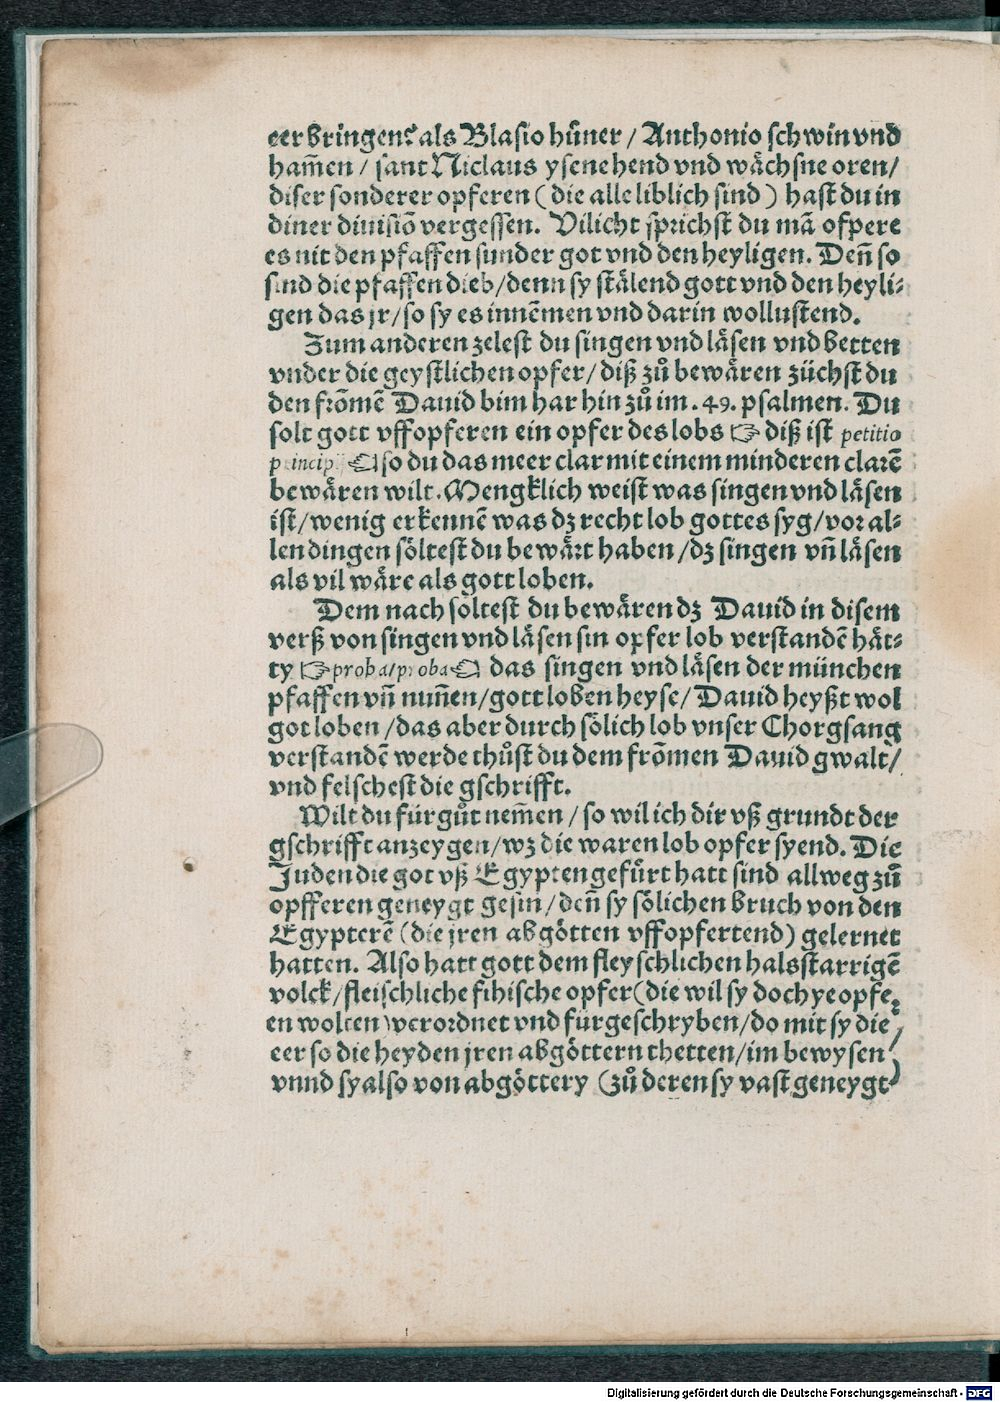 eer bringen? als Blasio hüner / Anthonio schwin vnd
ham̄en / sant Niclaus ysene hend vnd wächsne oren/
diser sonderer opferen (die alle liblich sind) hast du in
diner diuisiō vergessen. Vilicht sprichst du mā ofpere
es nit den pfaffen sunder got vnd den heyligen. Deñ so
sind die pfaffen dieb/denn sy stälend gott vnd den heyli⸗
gen das jr/so sy es innēmen vnd darin wollustend.
Zum anderen zelest du singen vnd läsen vnd betten
vnder die geystlichen opfer/diß zů bewären züchst du
den frōmē Dauid bim har hin zů im .49. psalmen. Du
solt gott vffopferen ein opfer des lobs ☞ diß ist petitio
principij ☜ so du das meer clar mit einem minderen clarē
bewären wilt. Mengklich weist was singen vnd läsen
ist/wenig erkennē was dz recht lob gottes syg/vor al⸗
len dingen söltest du bewärt haben/dz singen vñ läsen
als vil wäre als gott loben.
Dem nach soltest du bewären dz Dauid in disem
verß von singen vnd läsen sin opfer lob verstandē hät⸗
ty ☞ proba/proba ☜ das singen vnd läsen der münchen
pfaffen vñ num̄en/gott loben heyse/Dauid heyßt wol
got loben/das aber durch sölich lob vnser Chorgsang
verstandē werde thůst du dem frōmen Dauid gwalt/
vnd felschest die gschrifft.
Wilt du für gůt nem̄en/so wil ich dir vß grundt der
gschrifft anzeygen/wz die waren lob opfer syend. Die
Juden die got vß Egypten gefürt hatt sind allweg zů
opfferen geneygt gesin/deñ sy sölichen bruch von den
Egypterē (die jren abgötten vffopfertend) gelernet
hatten. Also hatt gott dem fleyschlichen halsstarrigē
volck/fleischliche fihische opfer(die wil sy doch ye opfe⸗
en wolten)verordnet vnd fürgeschryben/do mit sy die
eer so die heyden jren abgöttern thetten/im bewysen/
vnnd sy also von abgöttery (zů deren sy vast geneygt)
Digitalisierung gefördert durch die Deutsche Forschungsgemeinschaft - DFG